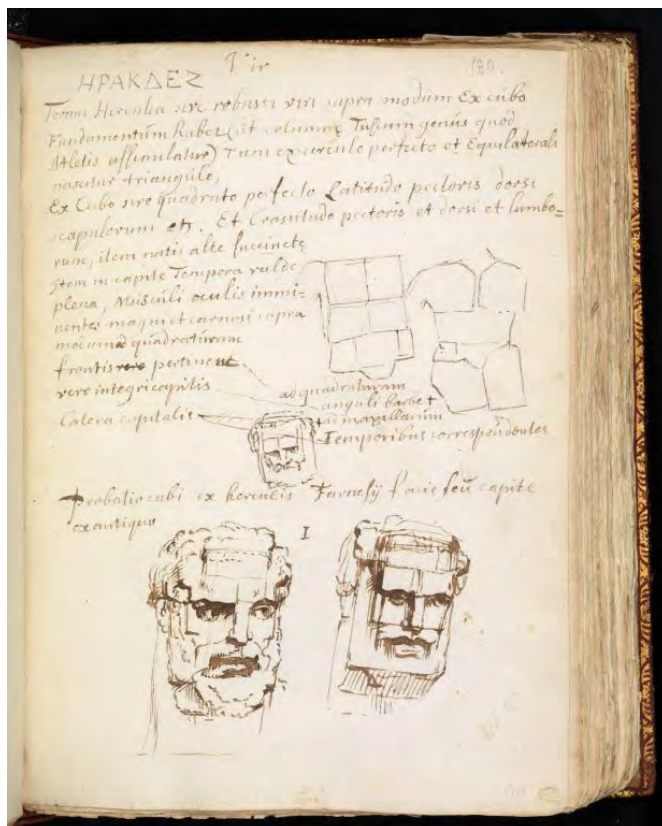 Vir
180.
ΗΡΑΚΔΕΖ
Forma Herculea sive robusti viri supra modum Ex cubo
Fundamentum habet (ut columnę Tuscum genus quod
Atletis assimulatur) Tum ex circulo perfecto et Equilaterali
nascitur triangulo,
Ex Cubo sive quadrato perfecto Latitudo pectoris dorsi
scapulorum etc. Et Crassitudo pectoris et dorsi et lumbo=
rum, item natis alte succinctę
Item in capite Tempora valde
plena, Musculi oculis immi=
nentes magni et carnosi supra
modum ad quadraturam
frontis vero pertinent
vero integri capitis
Cetera capitalis
ad quadraturam
anguli barbę
ad maxillarum
Temporibus correspondentes
Probatio cubi ex herculis Farnesij facie seu capite
ex antiquo
I